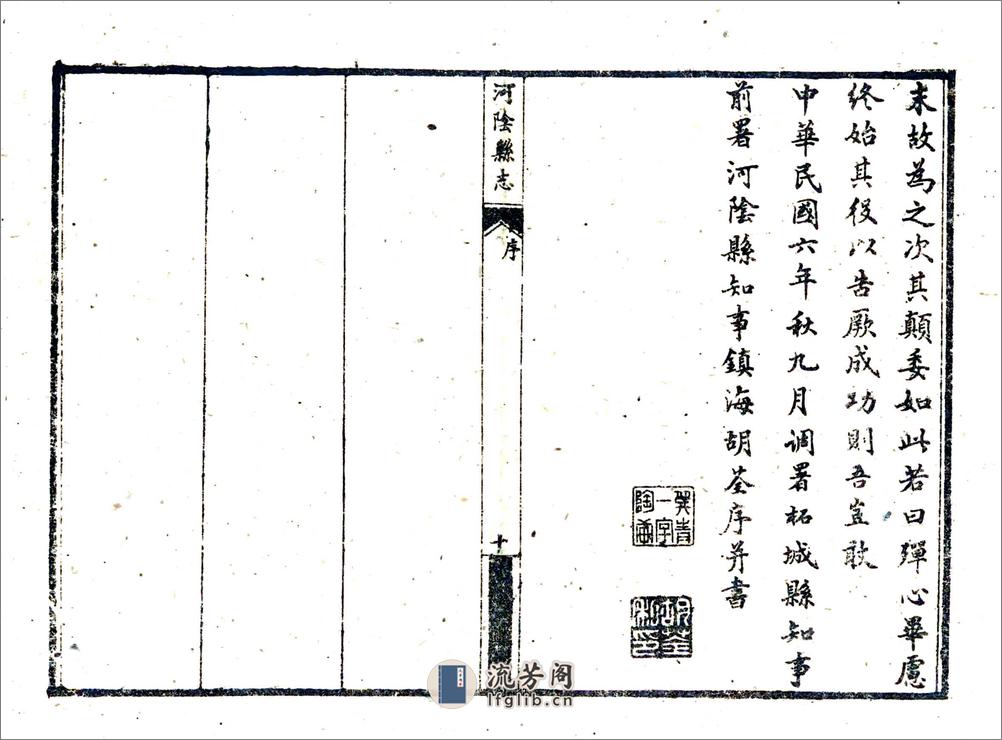 末故為之次其顛委如此若曰殫心畢慮
終始其役以告厥成功則吾豈敢
中華民國六年秋九月調署柘城縣知事
前署河陰縣知事鎮海胡荃序并書
河陰縣志
序
十
流芳阁
lfglib.cn